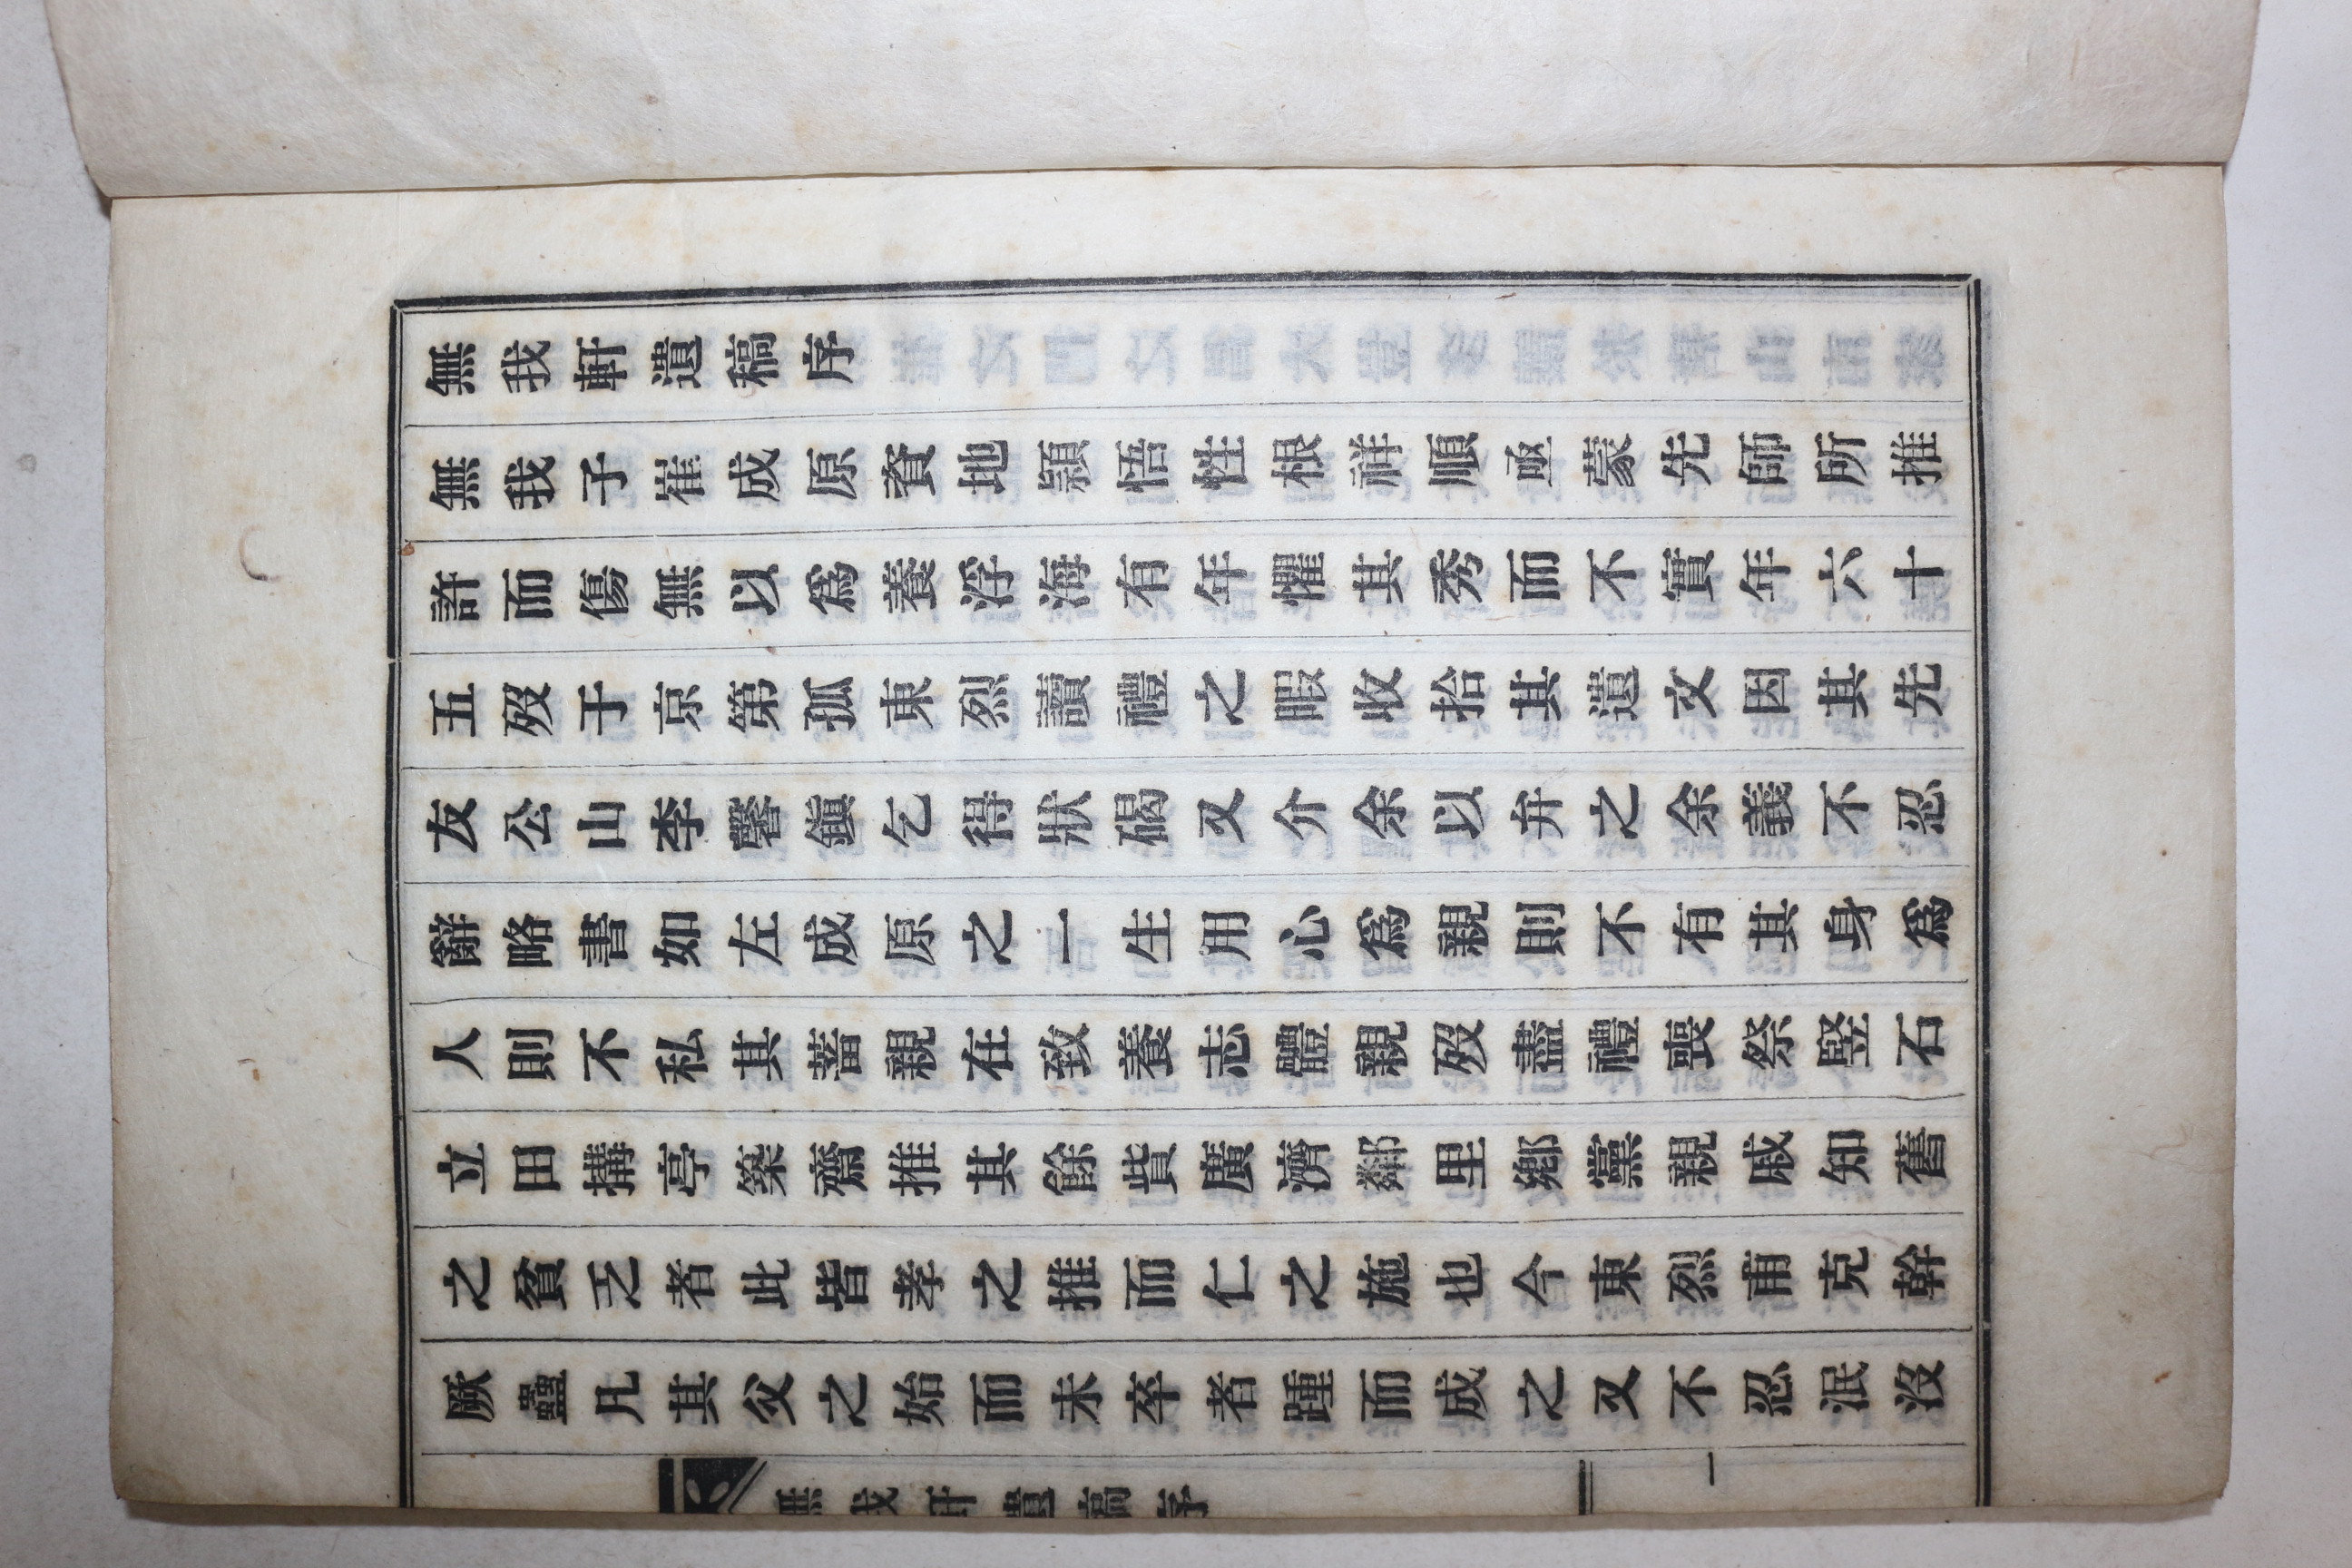 無我軒遺稿序
無我子崔成原資地頴悟性根祥順亟蒙先師所推
許而傷無以爲養浮海有年懼其秀而不實年六十
五歿于京第孤東烈讀禮之暇收拾其遺文因其先
友公山李馨鎭乞得狀碣又介余以弁之余義不忍
辭略書如左成原之一生用心爲親則不有其身爲
人則不私其蓄親在致養志體親歿盡禮喪祭竪石
立田搆亭築齋推其餘貲廣濟鄰里鄉黨親戚知舊
之貧乏者此皆孝之推而仁之施也今東烈甫克幹
厥蠱凡其父之始而未卒者踵而成之又不忍泯沒
無我軒遺稿序 一